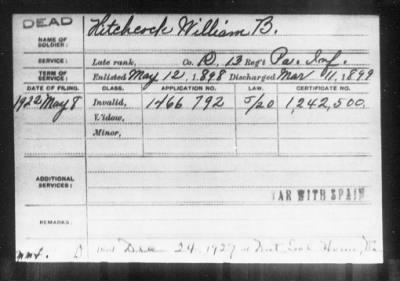 DEAD
Hitchcock William B.
NAME OF SOLDIER:
SERVICE: Late rank, Co. D, 13 Reg't Pa. Inf.
TERM OF SERVICE: Enlisted May 12, 1898 Discharged Mar 11, 1899
DATE OF FILING. CLASS. APPLICATION NO. LAW. CERTIFICATE NO.
1922 May 8 Invalid, 1466 792 5/20 1,242,500.
Widow,
Minor,
ADDITIONAL SERVICES:
WAR WITH SPAIN
REMARKS:
Died 24, 1927 at Home,